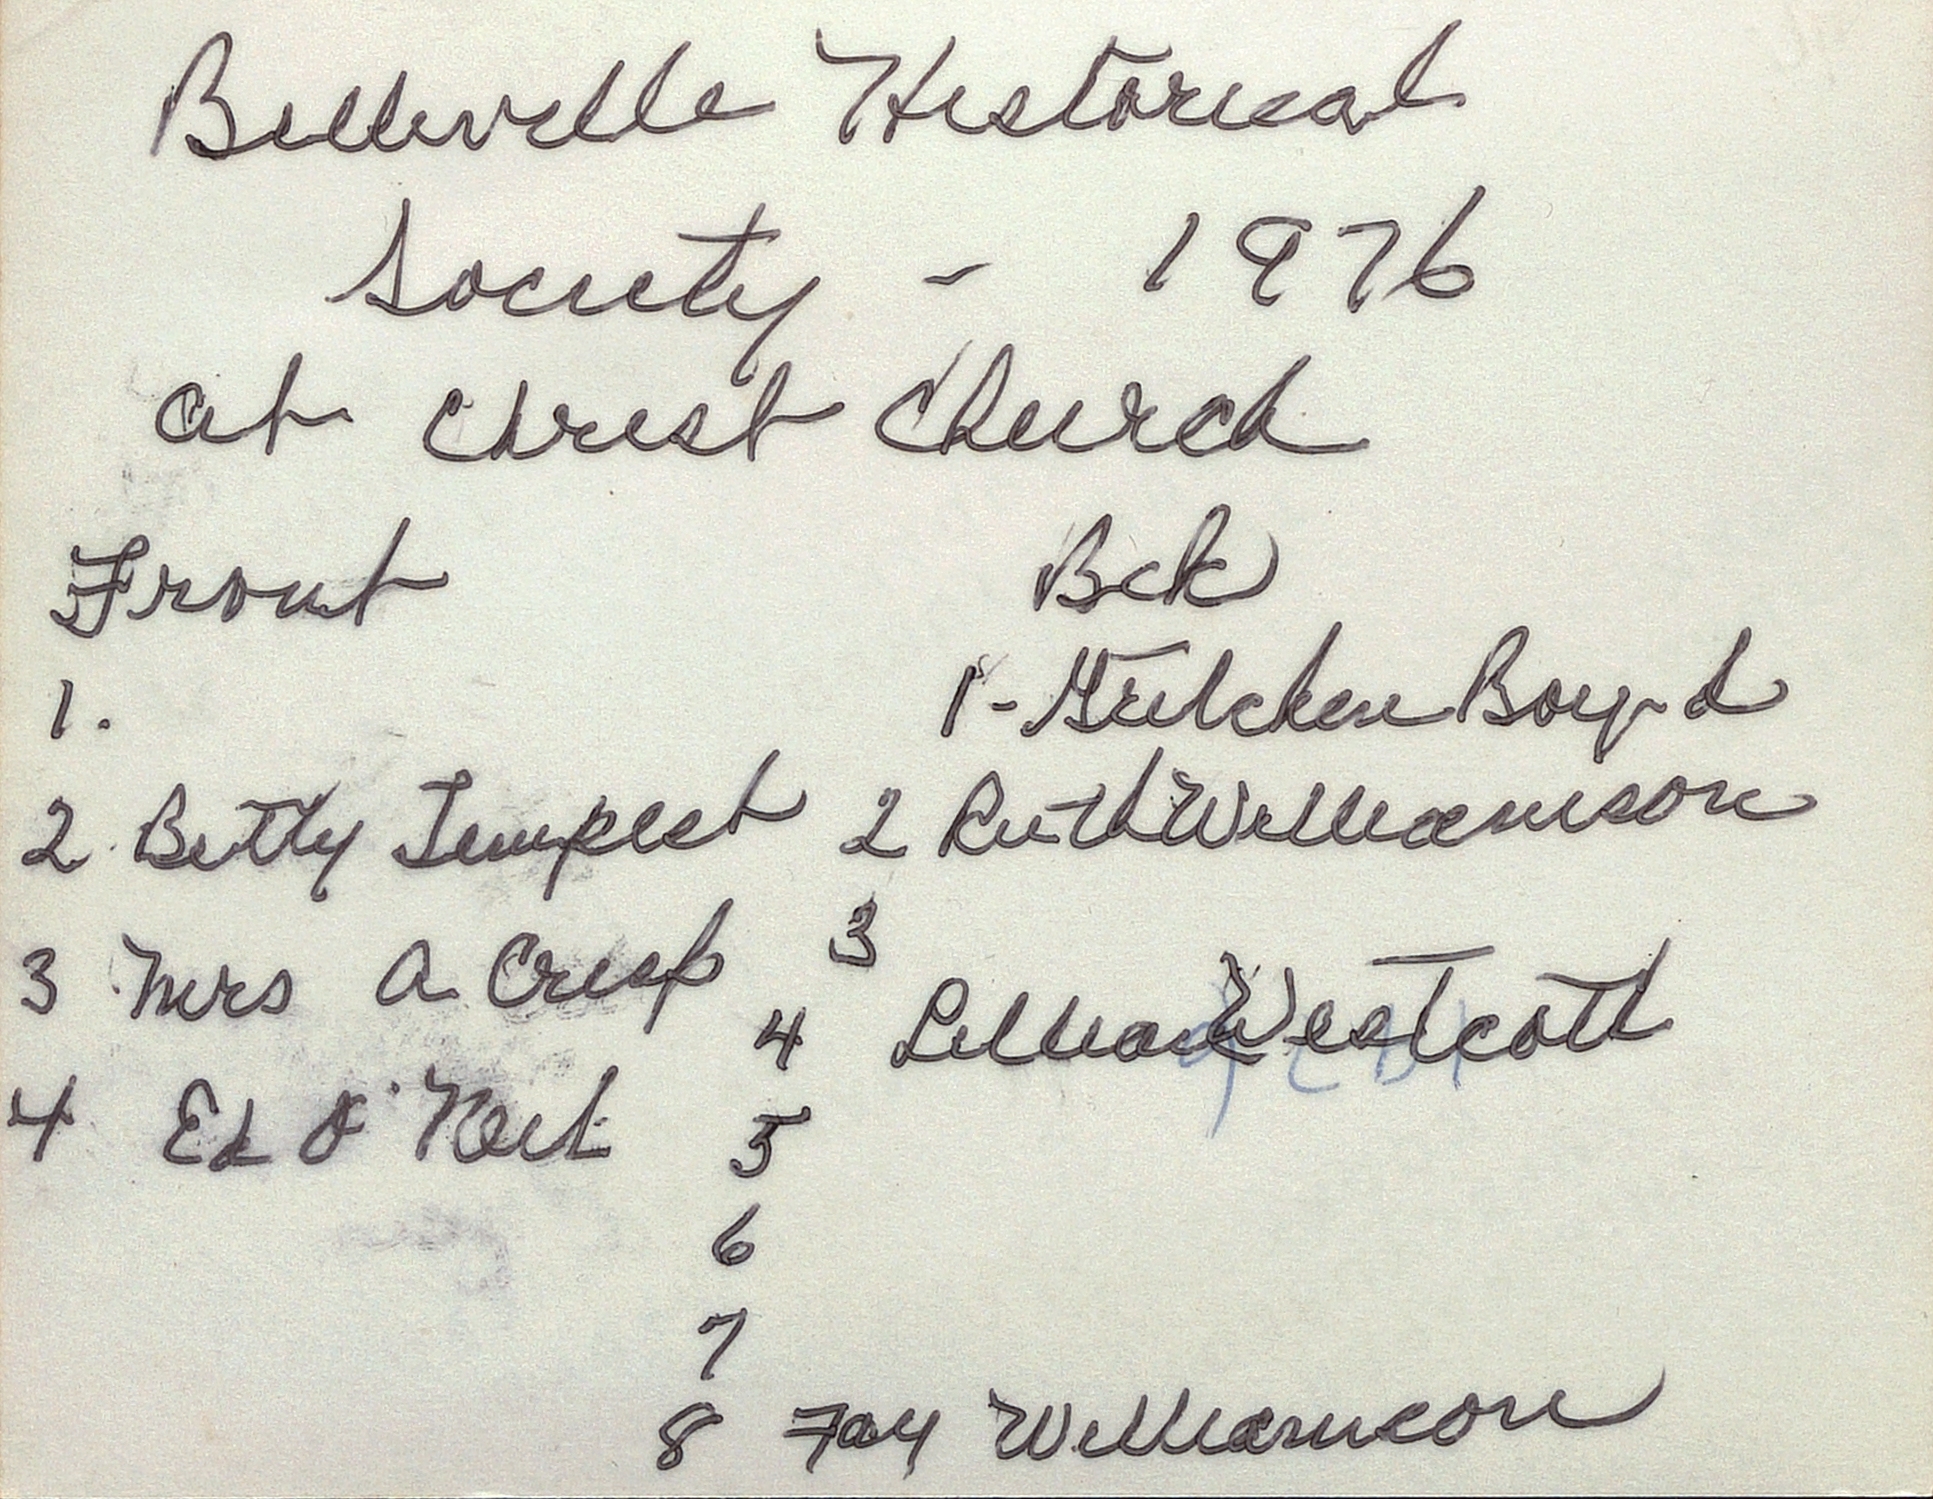 Belleville Historical
Society - 1976
at Christ Church
Front
1.
2 Betty Tempest
3 Mrs A Crisp
4 Ed O'Neil
Bck
1- Gretchen Boyd
2 Ruth Williamson
3
4 Lillian Westcott
5
6
7
8 Fay Williamson